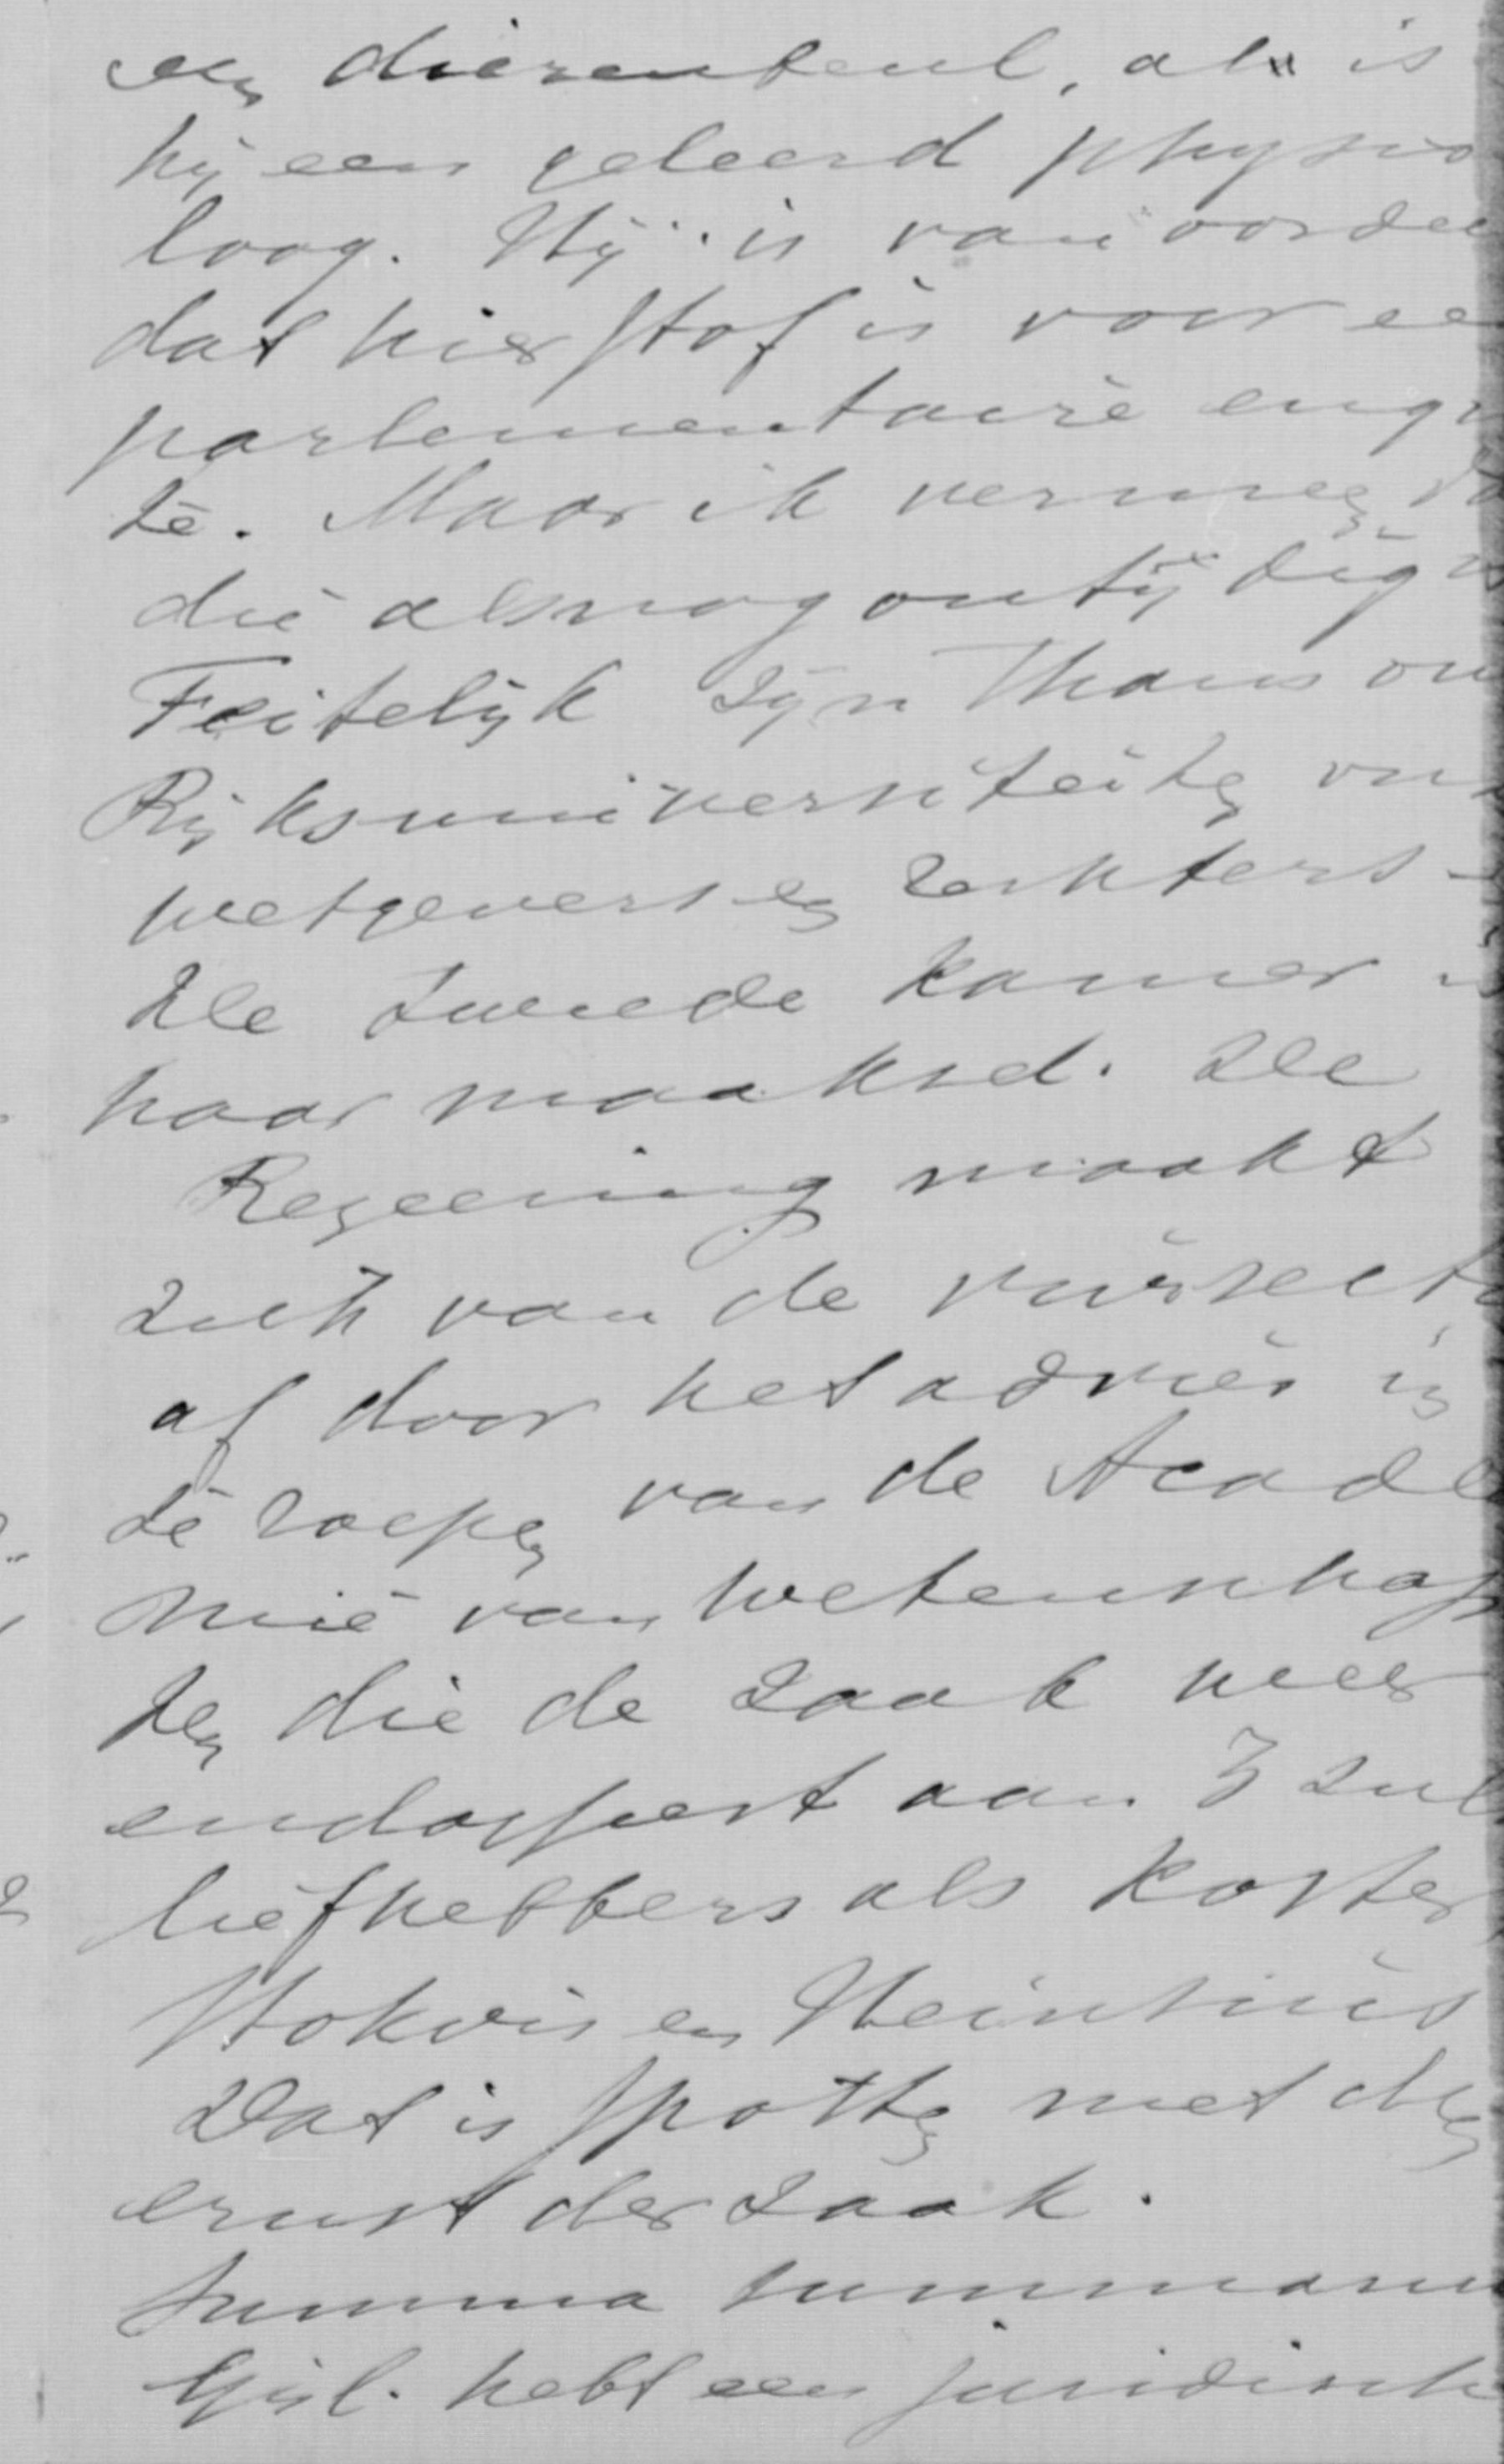 een dierenbeul, al is
hij een geleerd physio
loog. Hij is van oordee
dat hier stof is voor ee
parlementaire enq
te. Maar ik vermeen da
die alsnog ontijdig is
Feitelijk zijn thans on
Rijksuniversiteiten on
wetgevers en rechters
De tweede kamer is
haar maaksel. De
Regeering maakt
zich van de vivisect
af door het advies in
te roepen van de Acade
mie van Wetenschap
pen die de zaak weer
endosseert aan 3 zul
liefhebbers als Koster
Stokvis en Heinsius
Dat is spotten met den
ernst der zaak.
Summa summarum
Gijl. hebt een juridisch